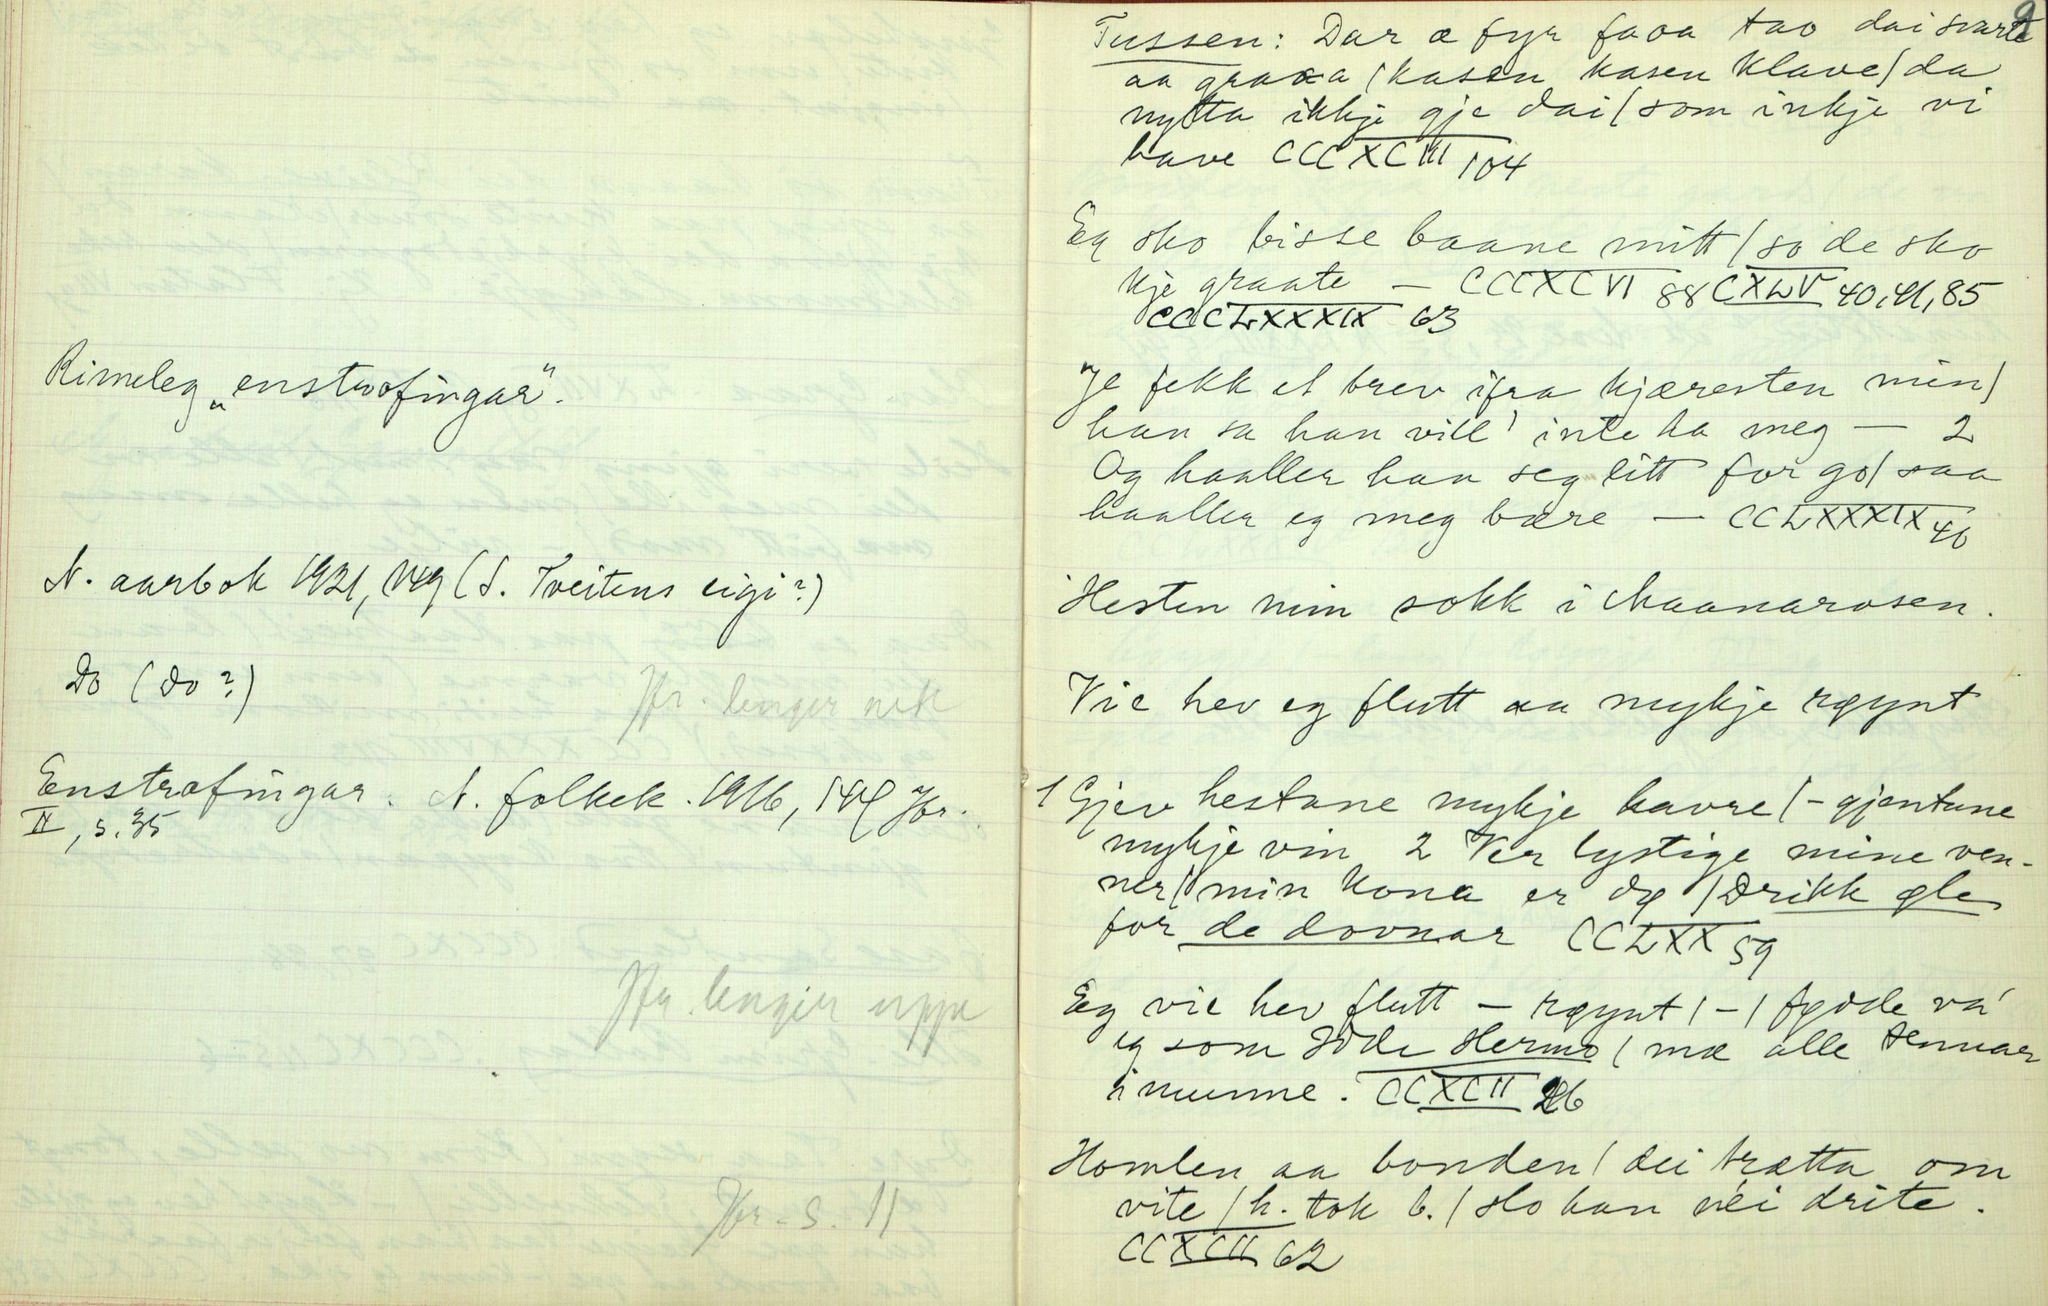 Rimeleg „enstrofingar".
N. aarbok 1921, 149 (S. Tveitens eigi?)
Do (do?)
Jfr. lenger nek
Enstrofingar. N. folkek. 1916, 144 Jfr.
II, s. 35
Jfr. lenger uppe
Jfr. s. 11
9
Tussen: Dar æ fyr faoa tao dai svarte
aa graaa / kasen kasen klave / da
nytta ikkje gje dai / som inkje vi
have CCCXCIII 104
Eg sko bisse baane mitt / so de sko
kje graate — CCCXCVI 88 CXLV 40, 41, 85
CCCLXXXIX 63
Je fekk et brev ifra kjæresten min /
han sa han vill' inte ha meg — 2
Og haaller han seg litt for go / saa
haaller eg meg bære — CCLXXXIX 46
Hesten min sokk i Maanarosen.
Vie hev eg flutt aa mykje røynt
1 Gjev hestane mykje havre / - gjentune
mykje vin 2 Ver lystige mine ven-
ner / min kona er dø / Drikk øle
for de dovnar CCLXX 59
Eg vie hev flutt — røynt / - / fødde va'
eg som Jode Hermo / mæ alle tennar
i munne. CCXCII 26
Homlen aa bonden / dei trætta om
vite / h. tok b. / slo han nei i drite.
CCXCII 62